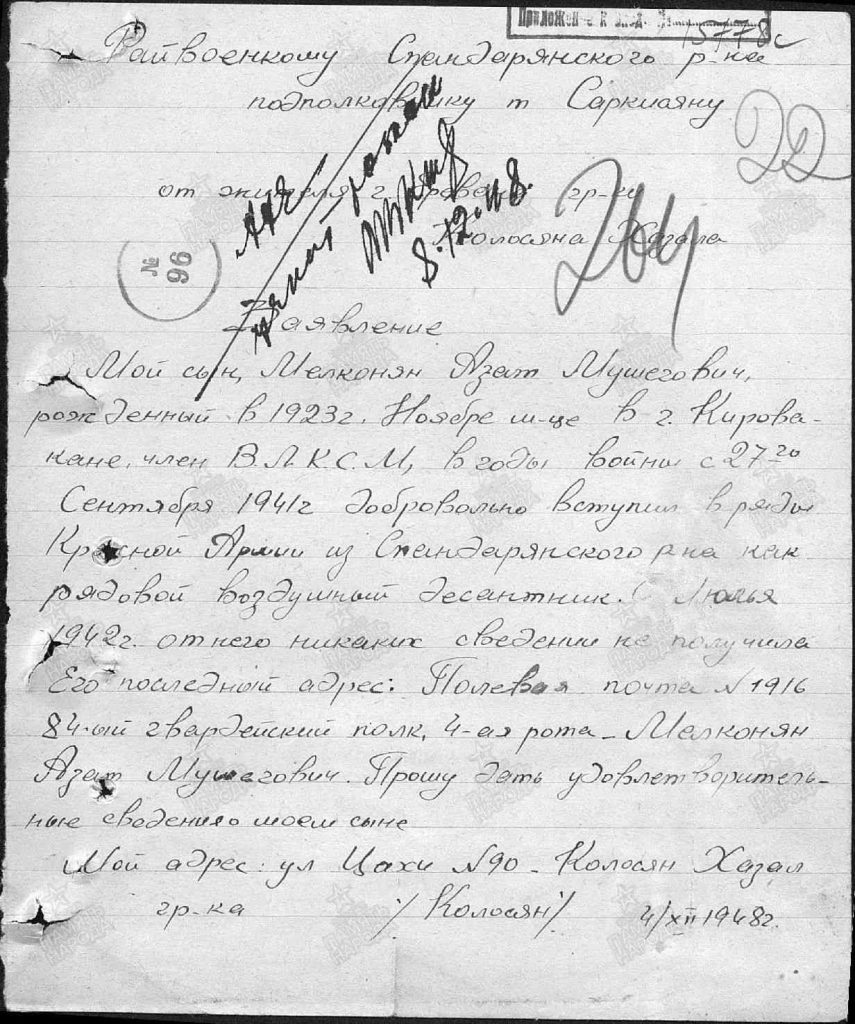 Приложение к вход. №
15778с
Райвоенкому Спандарянского р-на
подполковнику т Саркисяну
от жителя г. Еревана гр-ки
Колосяна Хазала
№ 96
8.12.48.
Заявление
Мой сын, Мелконян Азат Мушегович,
рожденный в 1923г. Ноябре м-це в г. Кирова-
кане, член В.Л.К.С.М, в годы войны с 27-го
Сентября 1941г добровольно вступил в ряды
Красной Армии из Спандарянского р-на как
рядовой воздушный десантник. С Июлья
1942г. от него никаких сведении не получила
Его последный адрес: Полевая почта N 1916
84-ый гвардейский полк, 4-ая рота - Мелконян
Азат Мушегович. Прошу дать удовлетворитель-
ные сведения о моем сыне
Мой адрес: ул Цахи N90 - Колосян Хазал
гр-ка /Колосян/ 4/XII 1948г.